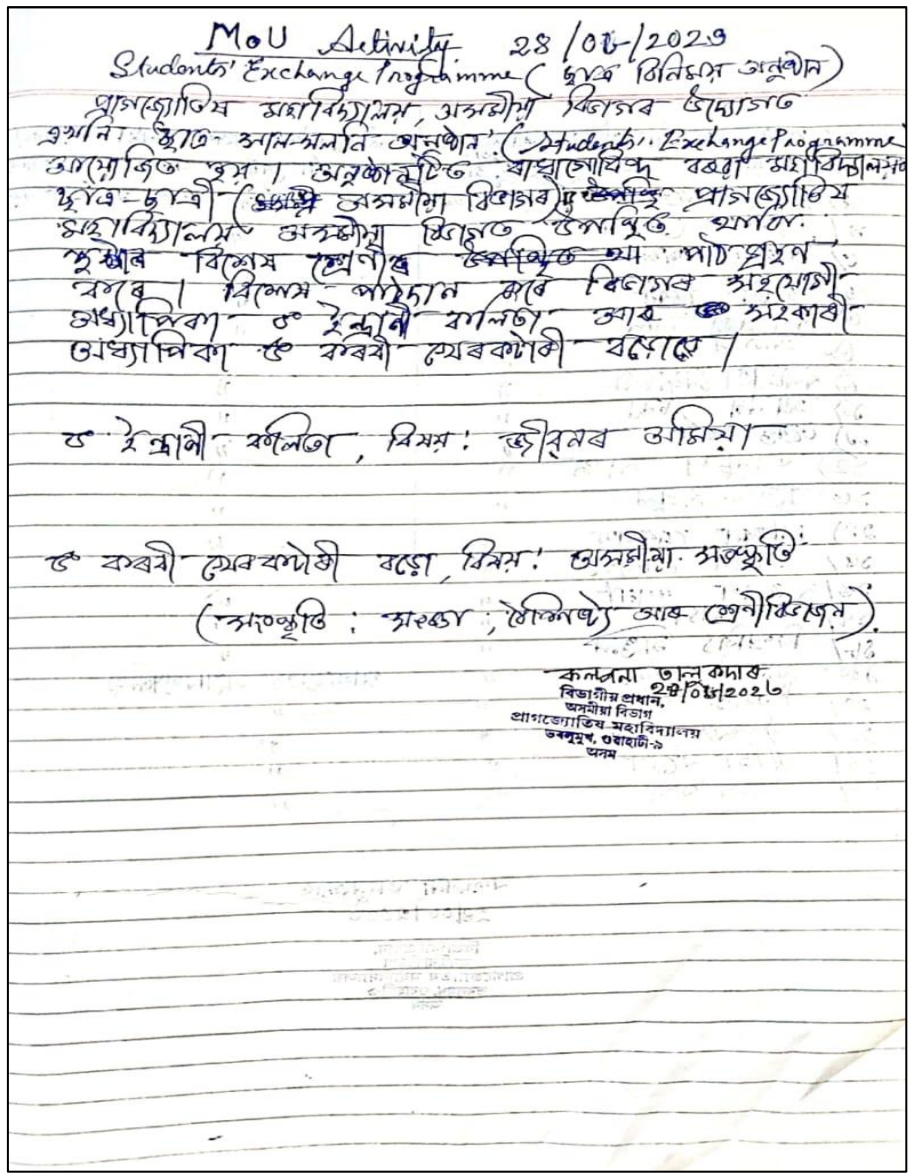 MoU Activity 28/06/2023
Students' Exchange Programme (ছাত্ৰ বিনিময় অনুষ্ঠান)
প্ৰাগজ্যোতিষ মহাবিদ্যালয়, অসমীয়া বিভাগৰ উদ্যোগত
এখনি ছাত্ৰ আদান-প্ৰদান অনুষ্ঠান (Students' Exchange Programme)
আয়োজিত হয়। অনুষ্ঠানটিত ৰাধাগোবিন্দ বৰুৱা মহাবিদ্যালয়ৰ
ছাত্ৰ-ছাত্ৰী (অসমীয়া বিভাগৰ) প্ৰাগজ্যোতিষ
মহাবিদ্যালয় অসমীয়া বিভাগত উপস্থিত থাকি
দুখন বিশেষ শ্ৰেণীত পাঠ গ্ৰহণ
কৰে। বিশেষ পাঠদান কৰে বিভাগৰ সহযোগী
অধ্যাপিকা ড° ইন্দ্ৰাণী কলিতা আৰু সহকাৰী
অধ্যাপিকা ড° কৰবী খেৰকটাৰী বড়োৱে।
ড° ইন্দ্ৰানী কলিতা, বিষয়: জীৱনৰ অমিয়া
ড° কৰবী খেৰকটাৰী বড়ো, বিষয়: অসমীয়া সংস্কৃতি
(সংস্কৃতি: সংজ্ঞা, বৈশিষ্ট্য আৰু শ্ৰেণীবিভাজন).
কল্পনা তালুকদাৰ
বিভাগীয় প্ৰধান,
অসমীয়া বিভাগ
প্ৰাগজ্যোতিষ মহাবিদ্যালয়
ভৰলুমুখ, গুৱাহাটী-৯
অসম